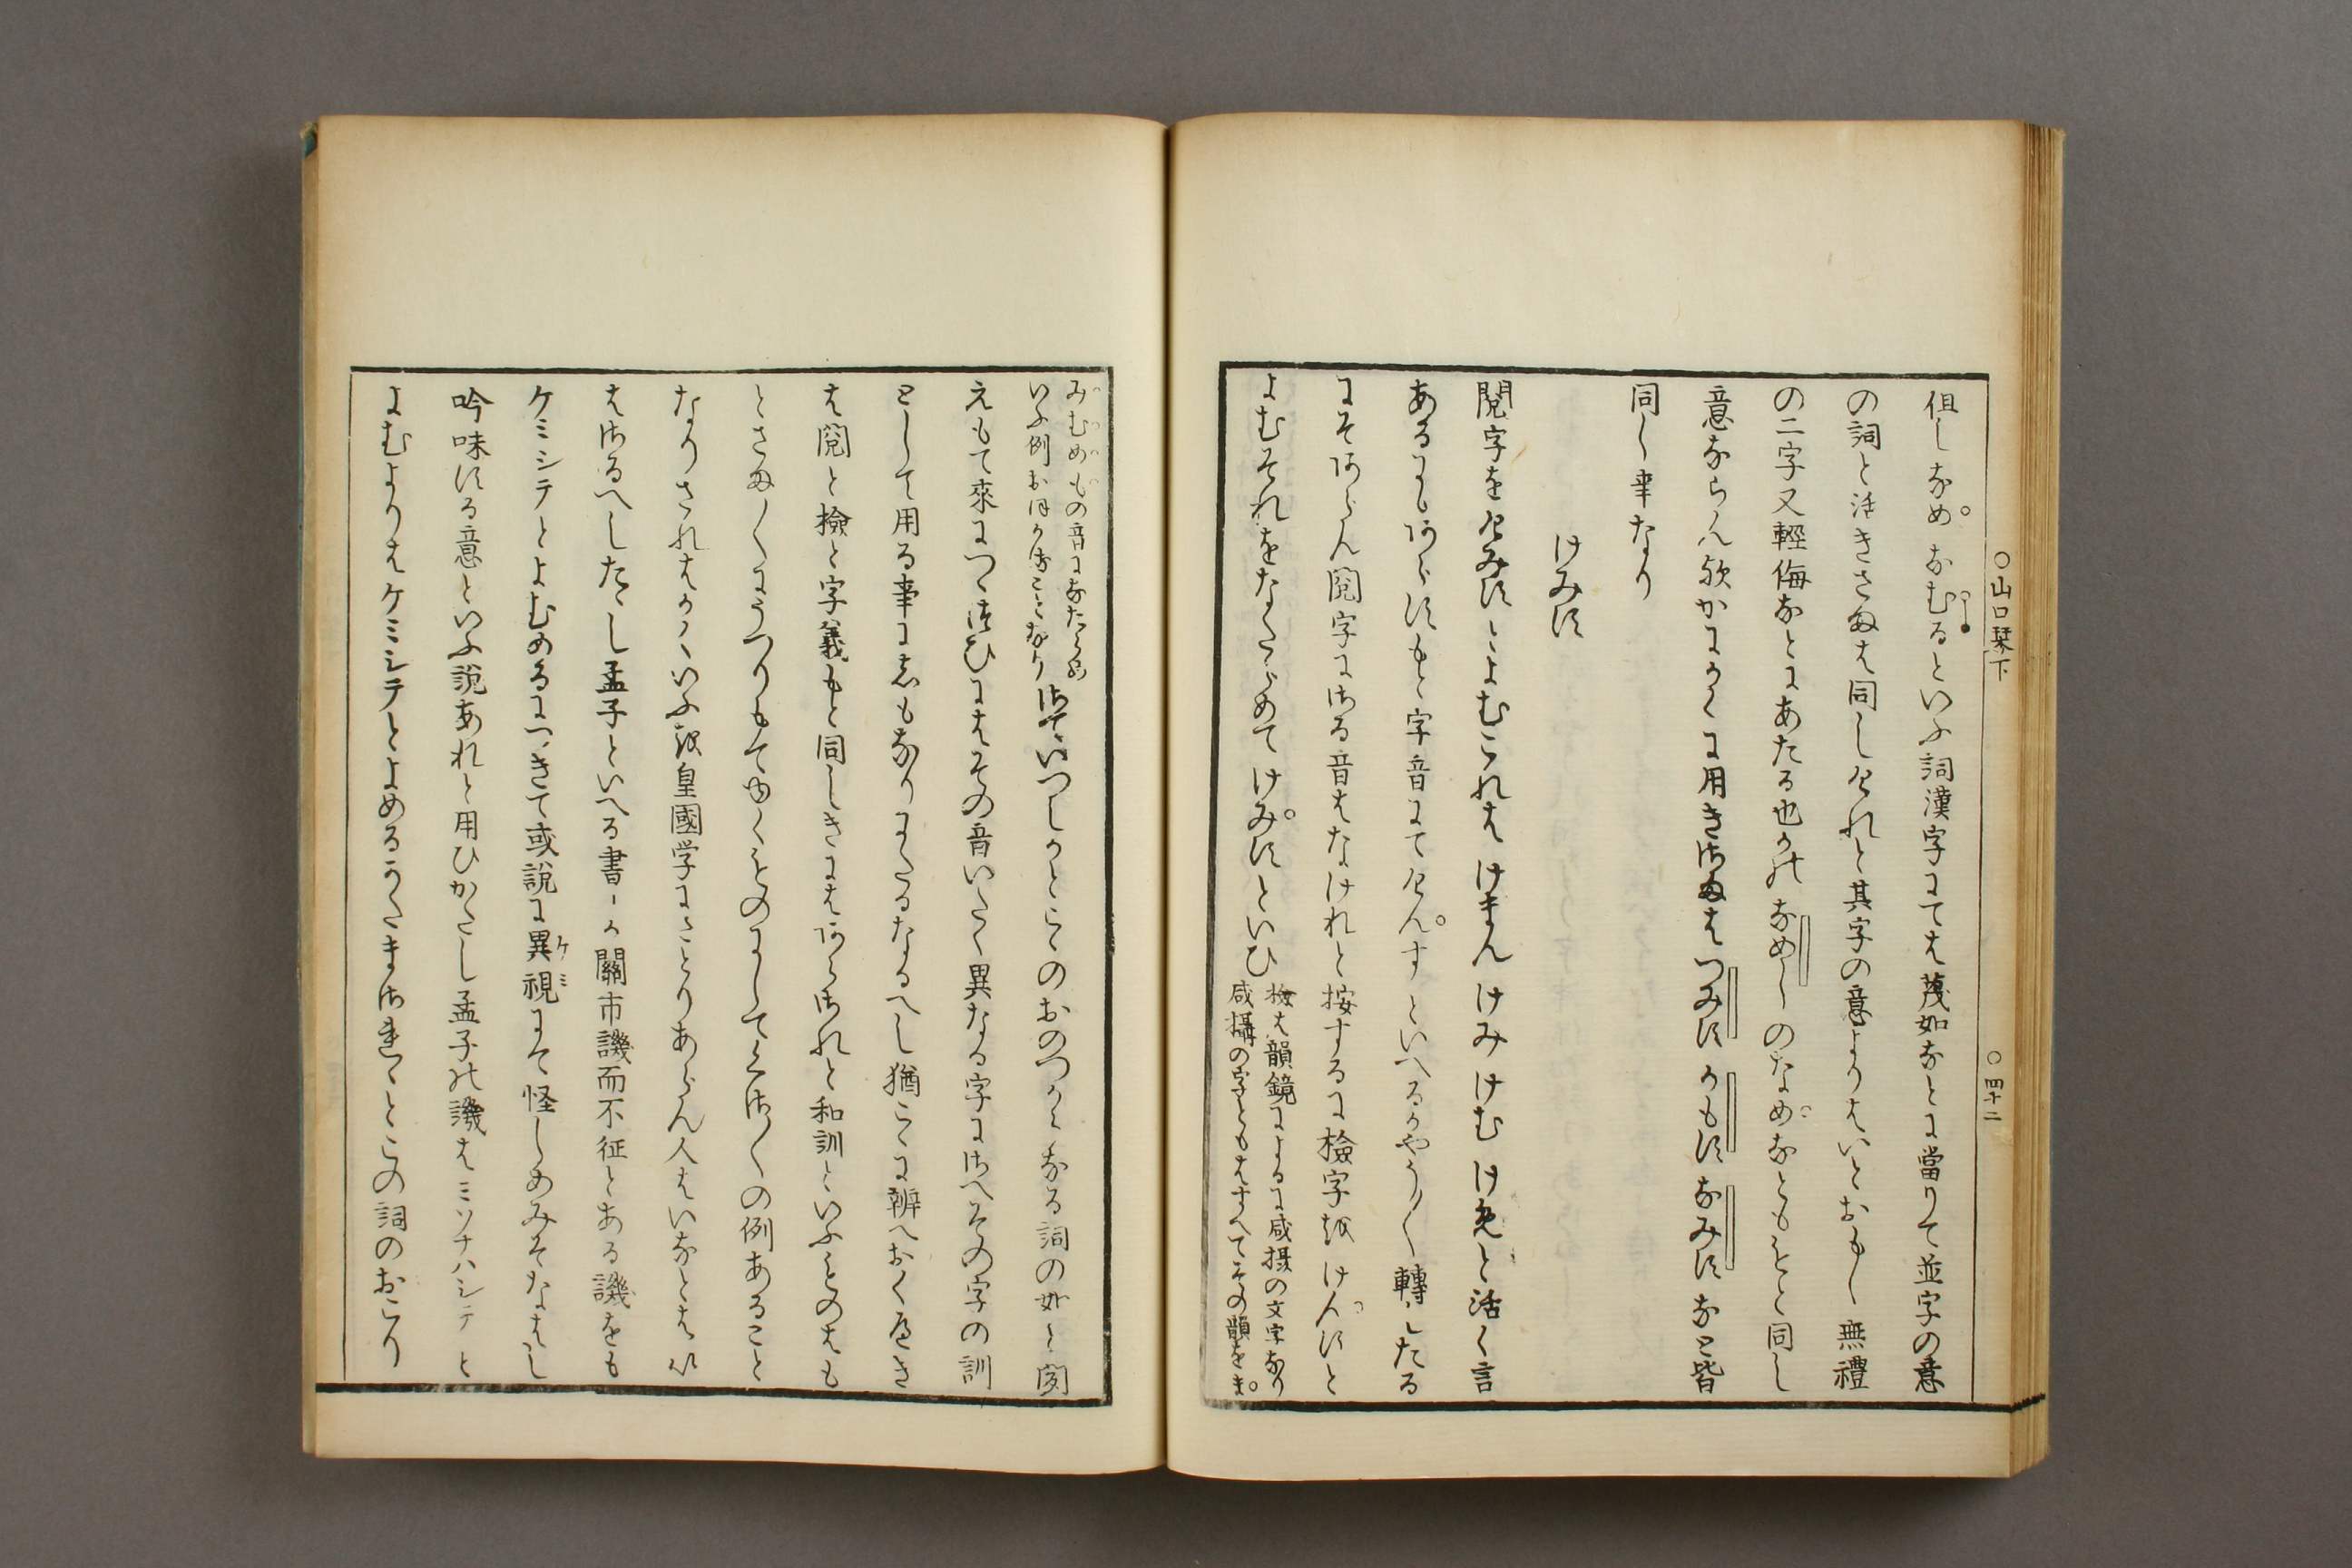 ○山口栞下
○四十二
但しなめ なむるといふ詞漢字にては蔑如なとに當りて並字の意
の詞と活きさまは同しけれと其字の意よりはいとおもし無禮
の二字又輕侮なとにあたる也かのなめしのなめなともこと同し
意ならん歟かにかくに用きさまはつみす かもす なみす なと皆
同し事なり
けみす
閲字をけみすとよむこれはけまん けみ けむ けめと活く言
あるにもあらすもと字音にてけんすといへるかやう〳〵轉したる
にそあらん閲字にさる音はなけれと按するに檢字をけんすと
よむそれをなたらめてけみすといひ
檢は韻鏡によるに咸摂の文字なり
咸攝の字ともはすへてその韻をま
みむめもの音になたらめ
いふ例おほかることなり
さていつしかとこゝのおのつから なる詞の如く閲
えもて來につゝ遂ひにはその音いたく異なる字にさへその字の訓
として用る事にしも なりにたるなるへし猶こゝに辨へおくへき
は閲と檢と字義もと同しきにはあらされと和訓といふものはも
とさま〳〵にうつりもてゆくものにしてくさ〳〵の例あること
なりされはかくいふを皇國学にことりあらん人はいなとはい
はさるへしたゝし孟子といへる書に關市譏而不征とある譏をも
ケミシテとよむめるにつきて或說に異視にて怪しめみそなはし
吟味する意といふ說あれと用ひかたし孟子の譏はミソナハシテと
よむよりはケミシテとよめるかたまされゝとこの詞のおこり